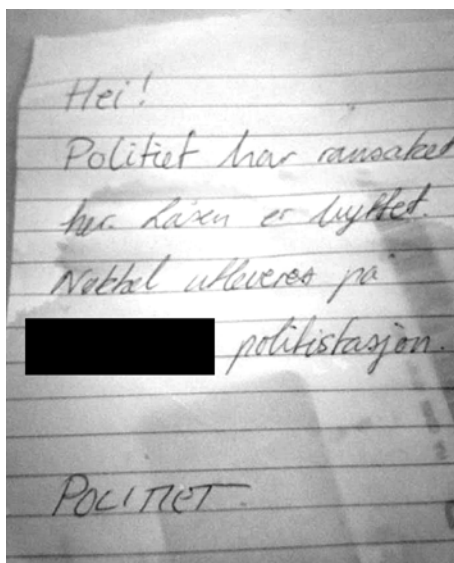 Hei!
Politiet har ransaket
her. Låsen er byttet.
Nøkkel utleveres på
politistasjon.
POLITIET